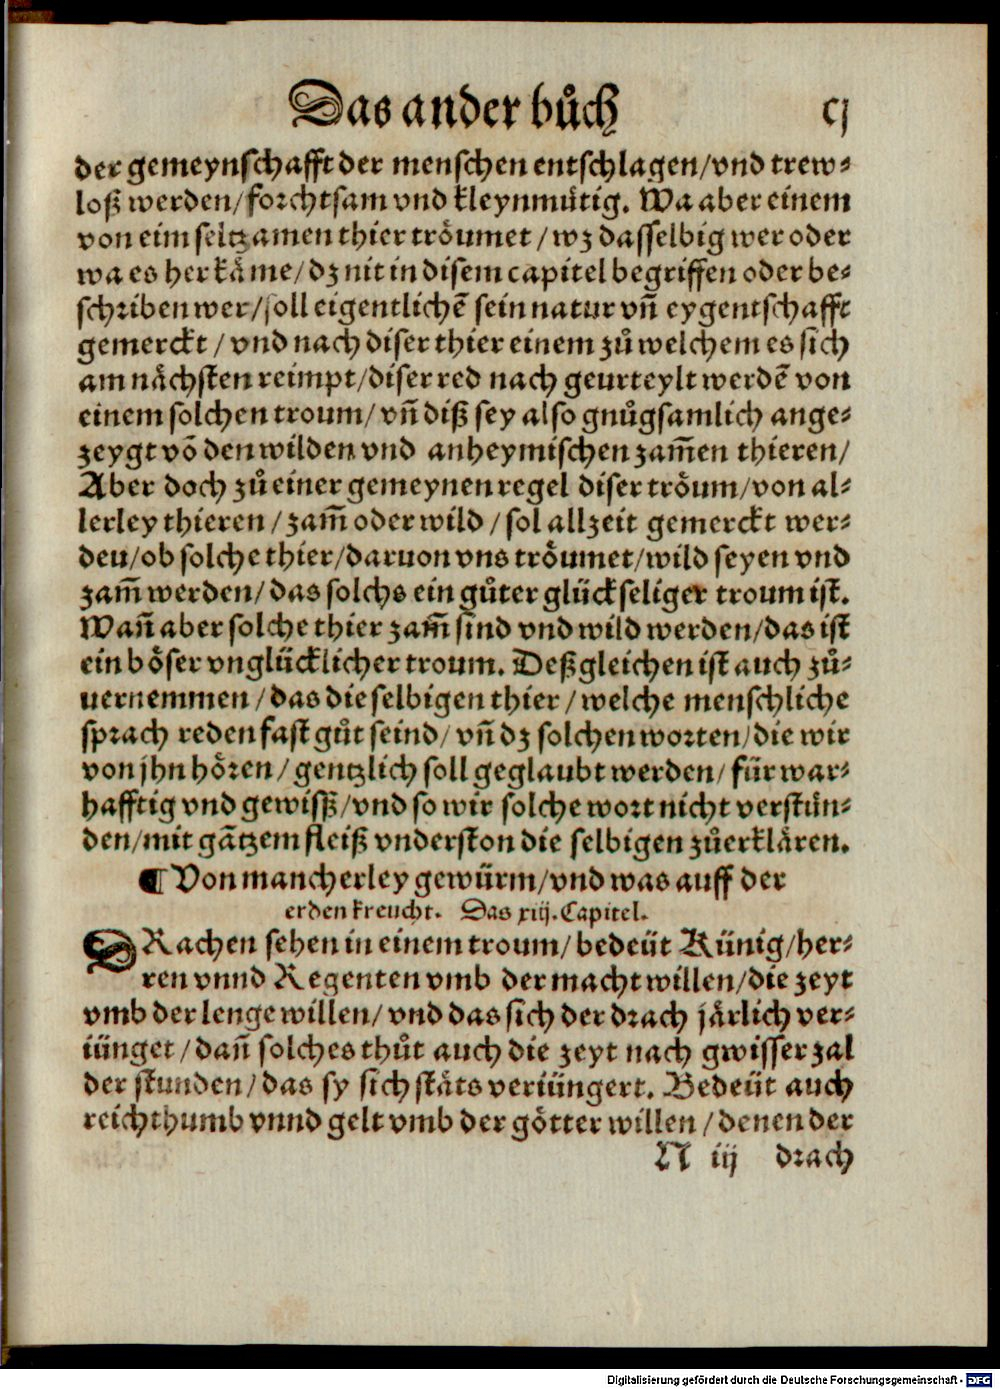 Das ander bůch cj
der gemeynschafft der menschen entschlagen/vnd trew⸗
loß werden/forchtsam vnd kleynmütig. Wa aber einem
von eim seltzamen thier tröumet/wz dasselbig wer oder
wa es her käme/dz nit in disem capitel begriffen oder be⸗
schriben wer/soll eigentlichē sein natur vñ eygentschafft
gemerckt/vnd nach diser thier einem zů welchem es sich
am nächsten reimpt/diser red nach geurteylt werdē von
einem solchen troum/vñ diß sey also gnůgsamlich ange⸗
zeygt vō den wilden vnd anheymischen zam̄en thieren/
Aber doch zů einer gemeynen regel diser tröum/von al⸗
lerley thieren/zam̄ oder wild/sol allzeit gemerckt wer⸗
deu/ob solche thier/daruon vns tröumet/wild seyen vnd
zam̄ werden/das solchs ein gůter glückseliger troum ist.
Wañ aber solche thier zam̄ sind vnd wild werden/das ist
ein böser vnglücklicher troum. Deßgleichen ist auch zů⸗
uernemmen/das die selbigen thier/welche menschliche
sprach reden fast gůt seind/vñ dz solchen worten/die wir
von jhn hören/gentzlich soll geglaubt werden/für war⸗
hafftig vnd gewisß/vnd so wir solche wort nicht verstün⸗
den/mit gātzem fleiß vnderston die selbigen zůerklären.
¶ Von mancherley gewürm/vnd was auff der
erden kreucht. Das xiij. Capitel.
DRachen sehen in einem troum/bedeüt Künig/her⸗
ren vnnd Regenten vmb der macht willen/die zeyt
vmb der lenge willen/vnd das sich der drach järlich ver⸗
iünget/dañ solches thůt auch die zeyt nach gwisser zal
der stunden/das sy sich stäts veriüngert. Bedeüt auch
reichthumb vnnd gelt vmb der götter willen/denen der
N iij drach
Digitalisierung gefördert durch die Deutsche Forschungsgemeinschaft - DFG